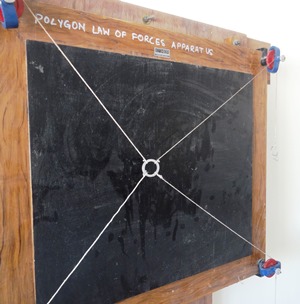 POLYGON LAW OF FORCES APPARATUS